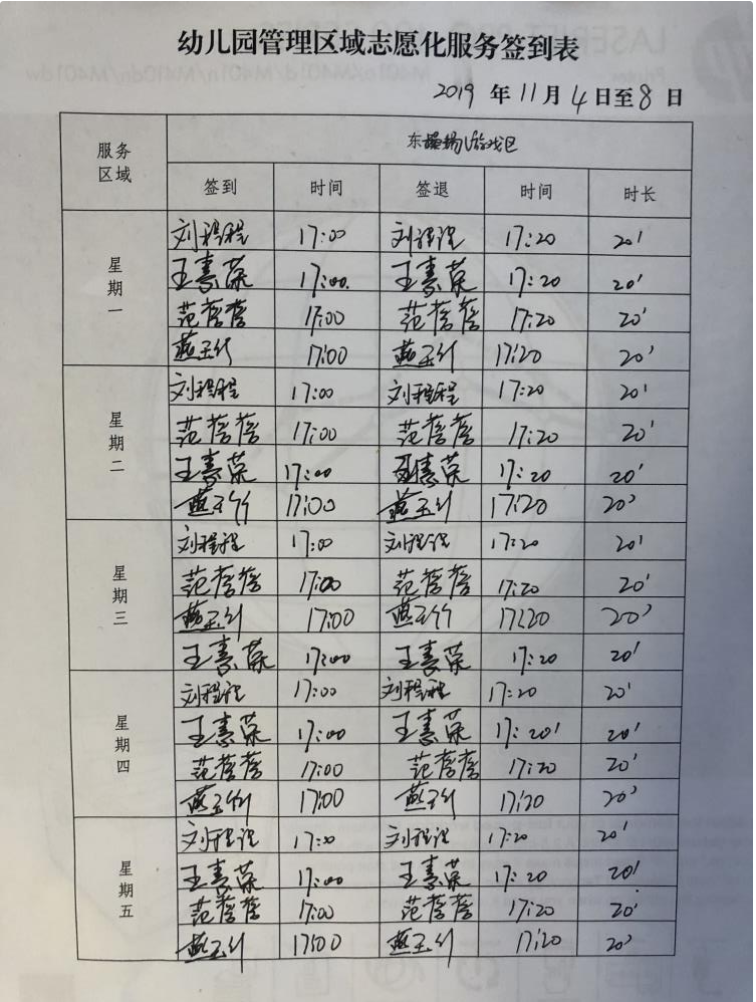 幼儿园管理区域志愿化服务签到表
2019 年 11 月 4 日至 8 日
服务区域 东操场游戏区
签到 时间 签退 时间 时长
星期一
刘程程 17:00 刘程程 17:20 20'
王喜荣 17:00. 王喜荣 17:20 20'
范蓉蓉 17:00 范蓉蓉 17:20 20'
燕玉竹 17:00 燕玉竹 17:20 20'
星期二
刘程程 17:00 刘程程 17:20 20'
范蓉蓉 17:00 范蓉蓉 17:20 20'
王喜荣 17:00 王喜荣 17:20 20'
燕玉竹 17:00 燕玉竹 17:20 20'
星期三
刘程程 17:00 刘程程 17:20 20'
范蓉蓉 17:00 范蓉蓉 17:20 20'
燕玉竹 17:00 燕玉竹 17:20 20'
王喜荣 17:00 王喜荣 17:20 20'
星期四
刘程程 17:00 刘程程 17:20 20'
王喜荣 17:00 王喜荣 17:20' 20'
范蓉蓉 17:00 范蓉蓉 17:20 20'
燕玉竹 17:00 燕玉竹 17:20 20'
星期五
刘程程 17:00 刘程程 17:20 20'
王喜荣 17:00 王喜荣 17:20 20'
范蓉蓉 17:00 范蓉蓉 17:20 20'
燕玉竹 17:00 燕玉竹 17:20 20'